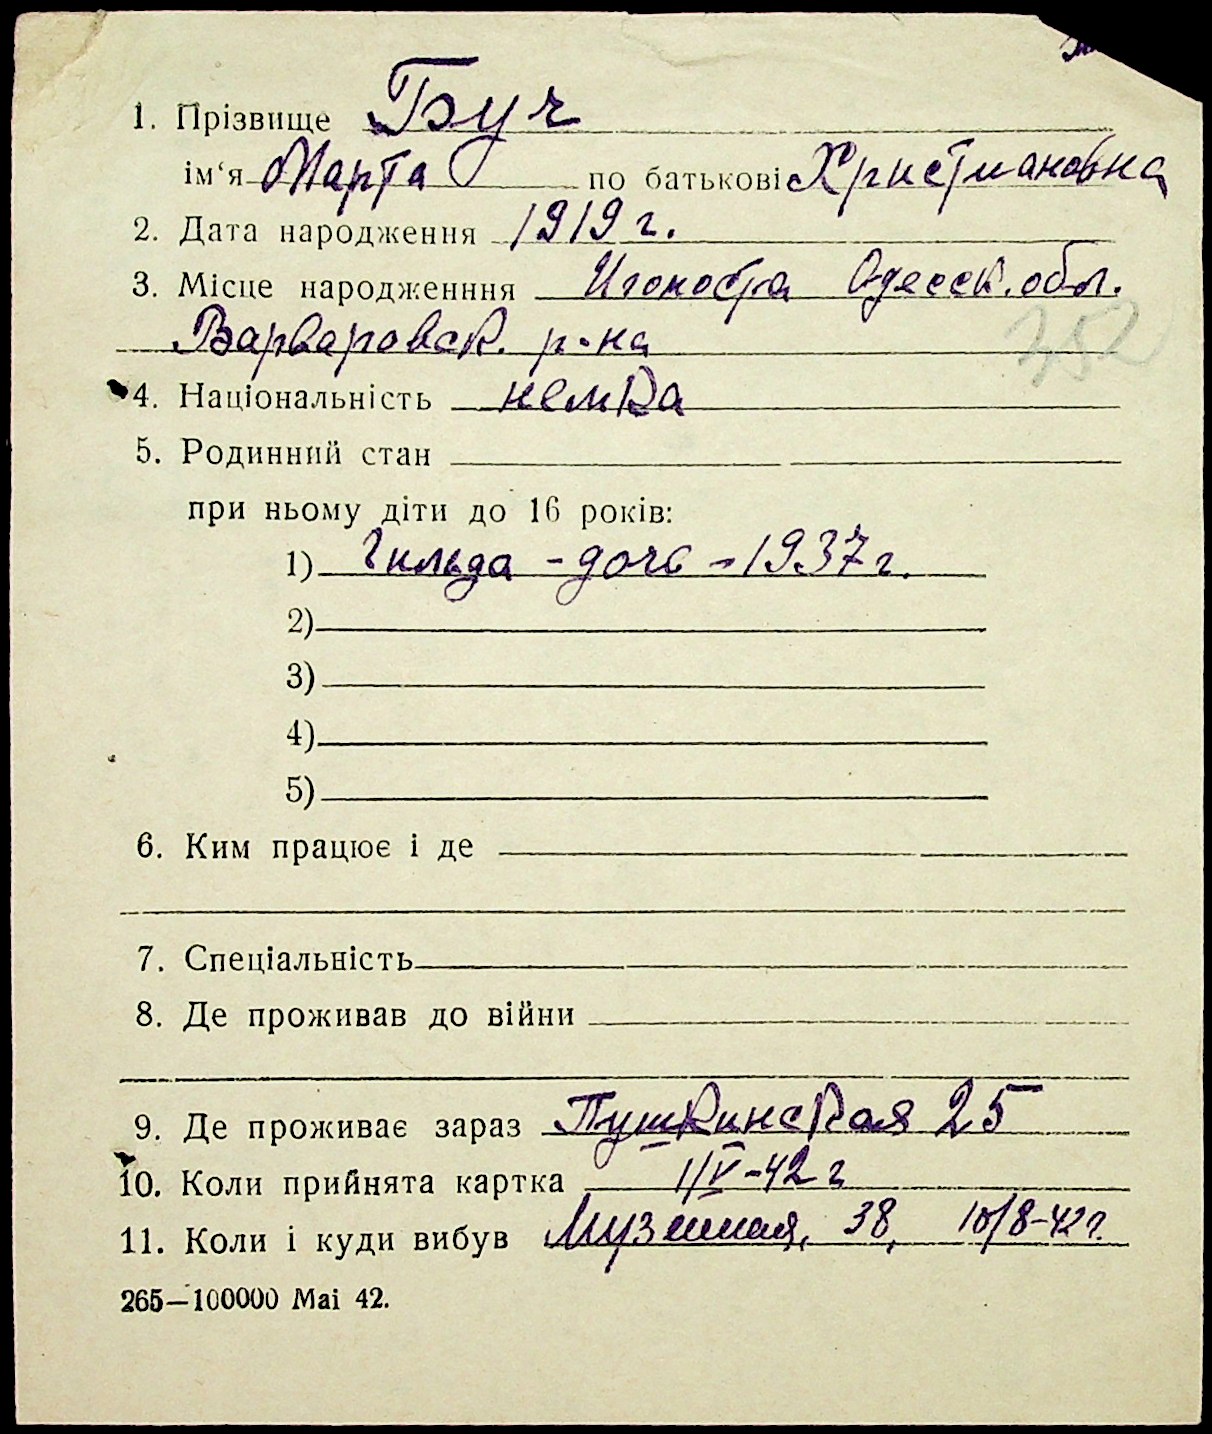 1. Прізвище Буч
ім‘я Марта по батькові Христиановна
2. Дата народження 1919 г.
3. Місце народженння Одесск. обл.
Варваровск. р-на
4. Національність немка
5. Родинний стан
при ньому діти до 16 років:
1) Гильда - дочь - 1937 г.
2)
3)
4)
5)
6. Ким працює і де
7. Спеціальність
8. Де проживав до війни
9. Де проживає зараз Пушкинская 25
10. Коли прийнята картка 1/V-42 г
11. Коли і куди вибув 38, 10/8-42 г.
265—100000 Маі 42.
352